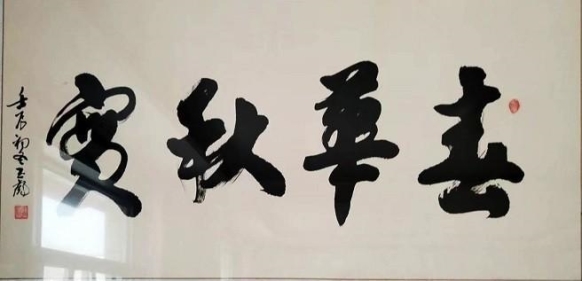 春華秋實
壬寅初冬玉彪